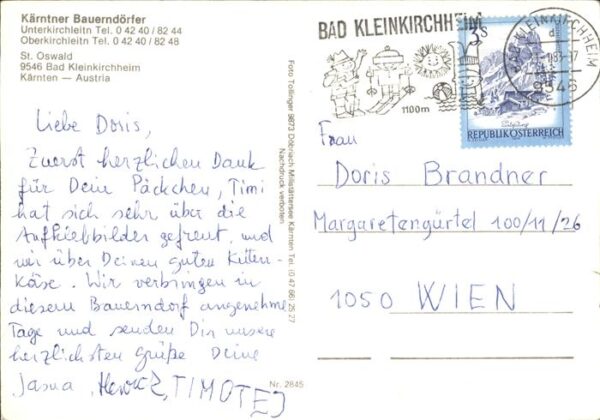 Kärntner Bauerndörfer
Unterkirchleitn Tel. 0 42 40 / 82 44
Oberkirchleitn Tel. 0 42 40 / 82 48
St. Oswald
9546 Bad Kleinkirchheim
Kärnten – Austria
Liebe Doris,
Zuerst herzlichen Dank
für Dein Päckchen, Timi
hat sich sehr über die
Aufkleebbilder gefreut, und
wir über Deinen guten
käse. Wir verbringen in
diesem Bauerndorf angenehme
Tage und senden Dir unsere
herzlichsten Grüße Deine
Jasna, TIMOTEJ
Foto Tollinger 9873 Döbriach Millstättersee Kärnten Tel. (0 47 86) 25 27
Nachdruck verboten
Nr. 2845
BAD KLEINKIRCHHEIM
1100m
3S
REPUBLIK ÖSTERREICH
BAD KLEINKIRCHHEIM
d
9546
Frau
Doris Brandner
Margaretengürtel 100/11/26
1050 WIEN